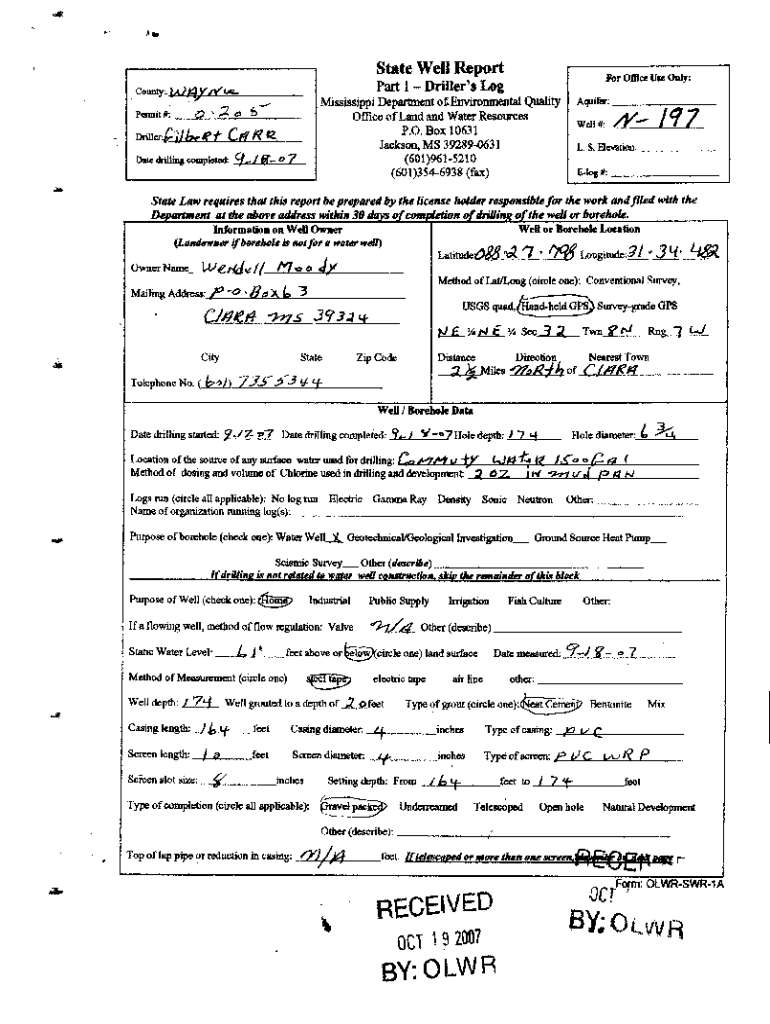 State Well Report
Part 1 – Driller's Log
Mississippi Department of Environmental Quality
Office of Land and Water Resources
P.O. Box 10631
Jackson, MS 39289-0631
(601)961-5210
(601)354-6938 (fax)
County: WAYNE
Permit #: 0-205
Driller: Gilbert CARR
Date drilling completed: 9-18-07
For Office Use Only:
Aquifer:
Well #: N-197
L. S. Elevation:
E-log #:
State Law requires that this report be prepared by the license holder responsible for the work and filed with the
Department at the above address within 30 days of completion of drilling of the well or borehole.
Information on Well Owner
(Landowner if borehole is not for a water well)
Owner Name Wendell Moody
Mailing Address: P-O-Box 63
CIARA MS 39324
City State Zip Code
Telephone No. (601) 7355344
Well or Borehole Location
Latitude: 088-27-798 Longitude: 31-34-482
Method of Lat/Long (circle one): Conventional Survey,
USGS quad, Hand-held GPS, Survey-grade GPS
NE ¼ NE ¼ Sec 32 Twn 8N Rng 7W
Distance Direction Nearest Town
2½ Miles North of CIARA
Well / Borehole Data
Date drilling started: 9-17-07 Date drilling completed: 9-18-07 Hole depth: 174 Hole diameter: 6 3/4
Location of the source of any surface water used for drilling: Commuty WATER 1500 GAl
Method of dosing and volume of Chlorine used in drilling and development: 2 OZ IN mud PAN
Logs run (circle all applicable): No log run Electric Gamma Ray Density Sonic Neutron Other:
Name of organization running log(s):
Purpose of borehole (check one): Water Well X Geotechnical/Geological Investigation Ground Source Heat Pump
Seismic Survey Other (describe)
If drilling is not related to water well construction, skip the remainder of this block
Purpose of Well (check one): Home Industrial Public Supply Irrigation Fish Culture Other:
If a flowing well, method of flow regulation: Valve N/A Other (describe)
Static Water Level: 61' feet above or below (circle one) land surface Date measured: 9-18-07
Method of Measurement (circle one) steel tape electric tape air line other:
Well depth: 174 Well grouted to a depth of 20 feet Type of grout (circle one): Neat Cement Bentonite Mix
Casing length: 164 feet Casing diameter: 4 inches Type of casing: PVC
Screen length: 10 feet Screen diameter: 4 inches Type of screen: PVC WRP
Screen slot size: 8 inches Setting depth: From 164 feet to 174 feet
Type of completion (circle all applicable): Gravel packed Underreamed Telescoped Open hole Natural Development
Other (describe):
Top of lap pipe or reduction in casing: N/A feet. If telescoped or more than one screen,
Form: OLWR-SWR-1A
OCT
BY: OLWR
RECEIVED
OCT 19 2007
BY: OLWR